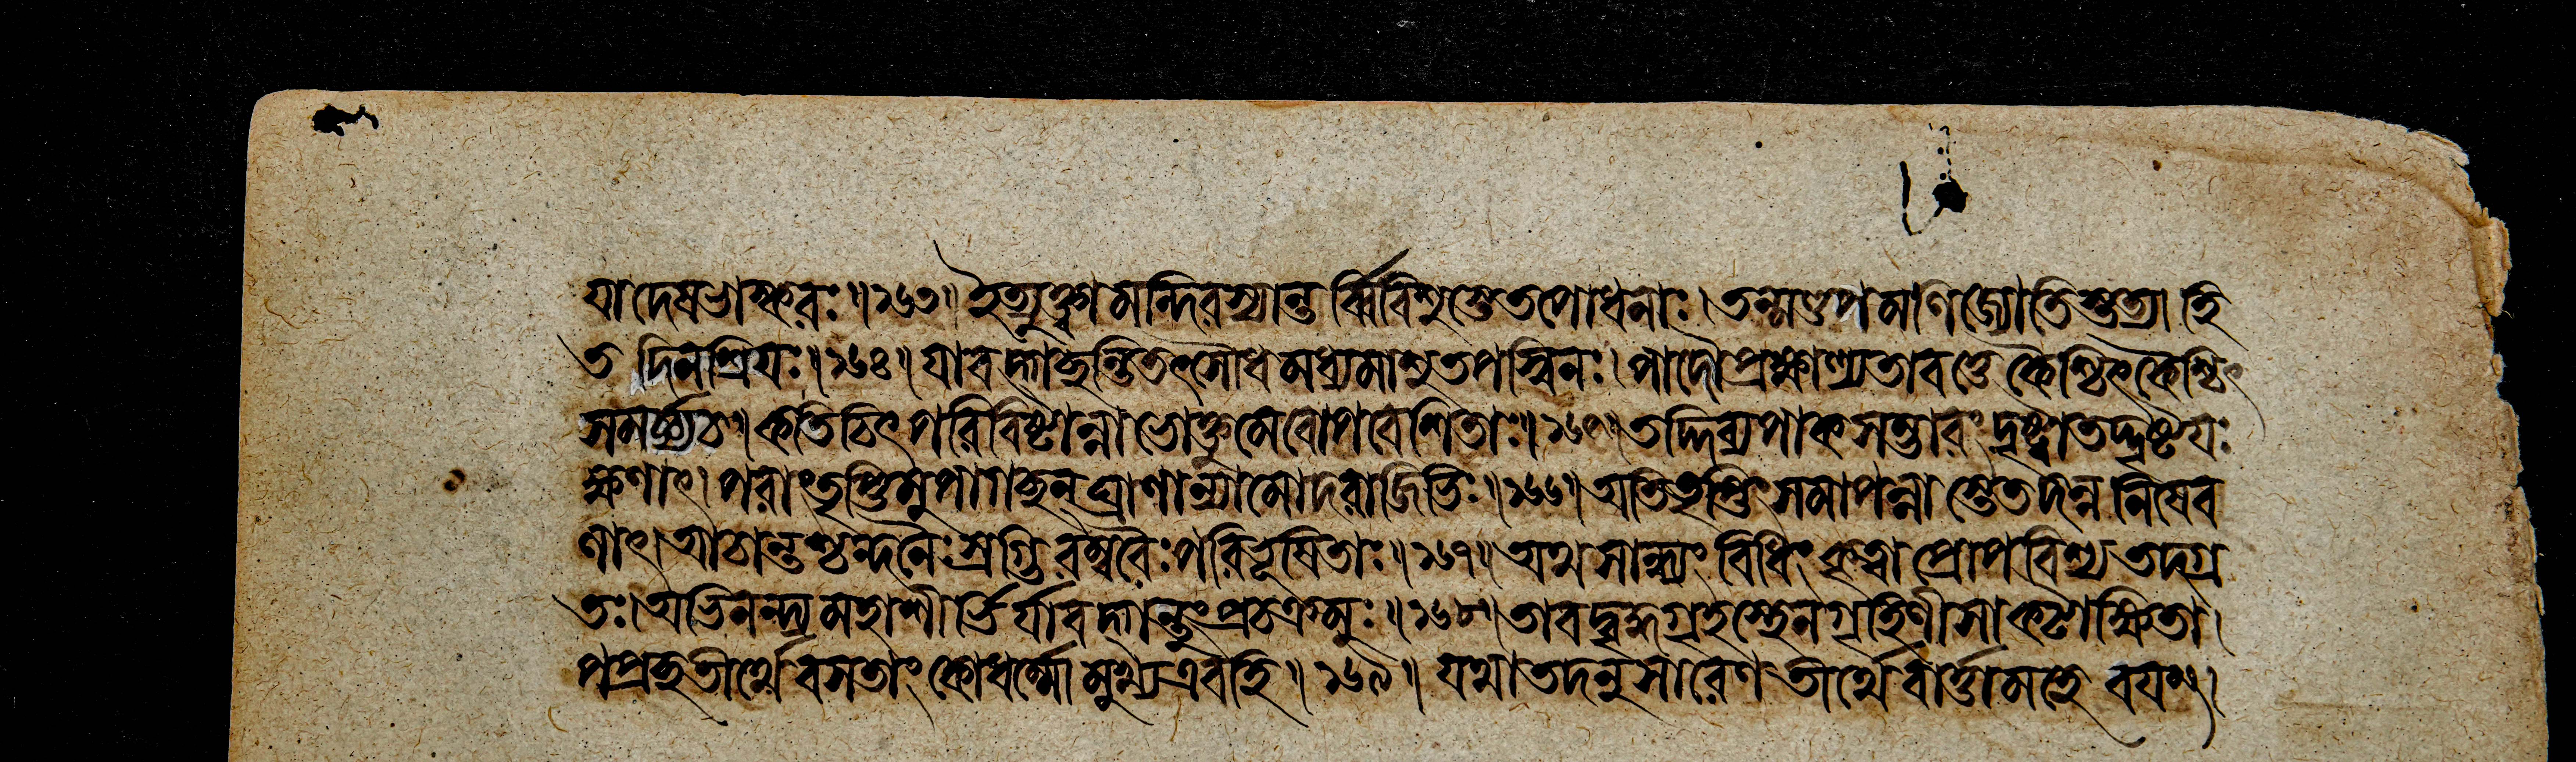 যা দেষভাস্করঃ॥১৬৩॥ইত্যুক্ত্বা মন্দিরস্যান্তর্ব্বিবিশুস্তেতপোধনাঃ।তন্মণ্ডপমণিজ্যোতিস্তত্রা হি
ত দিনশ্রিয়ঃ॥১৬৪॥যাবদ্গচ্ছন্তিতৎসৌধমধ্যমাশুতপস্বিনঃ।পাদৌপ্রক্ষাল্যতাবত্তে কৈশ্চিৎকৈশ্চিৎ
সমর্চ্চ্যচ।কতিচিৎ পরিবিষ্টান্না ভোক্তুমেবোপবেশিতাঃ॥১৬৫॥তদ্দিব্যপাকসম্ভারং দৃষ্ট্বাতদ্দৃষ্টয়ঃ
ক্ষণাৎ।পরাংতৃপ্তিমুপাগচ্ছন্ ঘ্রাণান্যামোদরাজিভিঃ॥১৬৬॥অতিতৃপ্তিং সমাপন্না স্তেতদন্ন নিষেব
ণাৎ।আচান্তশ্চন্দনৈঃস্রগ্ভি রম্বরৈঃপরিভূষিতাঃ॥১৬৭॥অথসান্ধ্যং বিধিং কৃত্বা প্রোপবিশ্য তদগ্র
তঃ।অভিনন্দ্য মহাশীর্ভির্যাবদ্গন্তুং প্রচক্রমুঃ॥১৬৮॥তাবদ্বৃদ্ধগৃহস্থেনগৃহিণীসা কটাক্ষিতা।
পপ্রচ্ছতীর্থেবসতাং কোধর্ম্মো মুখ্যএবহি॥১৬৯॥ যথাতদনুসারেণ তীর্থে বর্ত্তামহে বয়ম্।